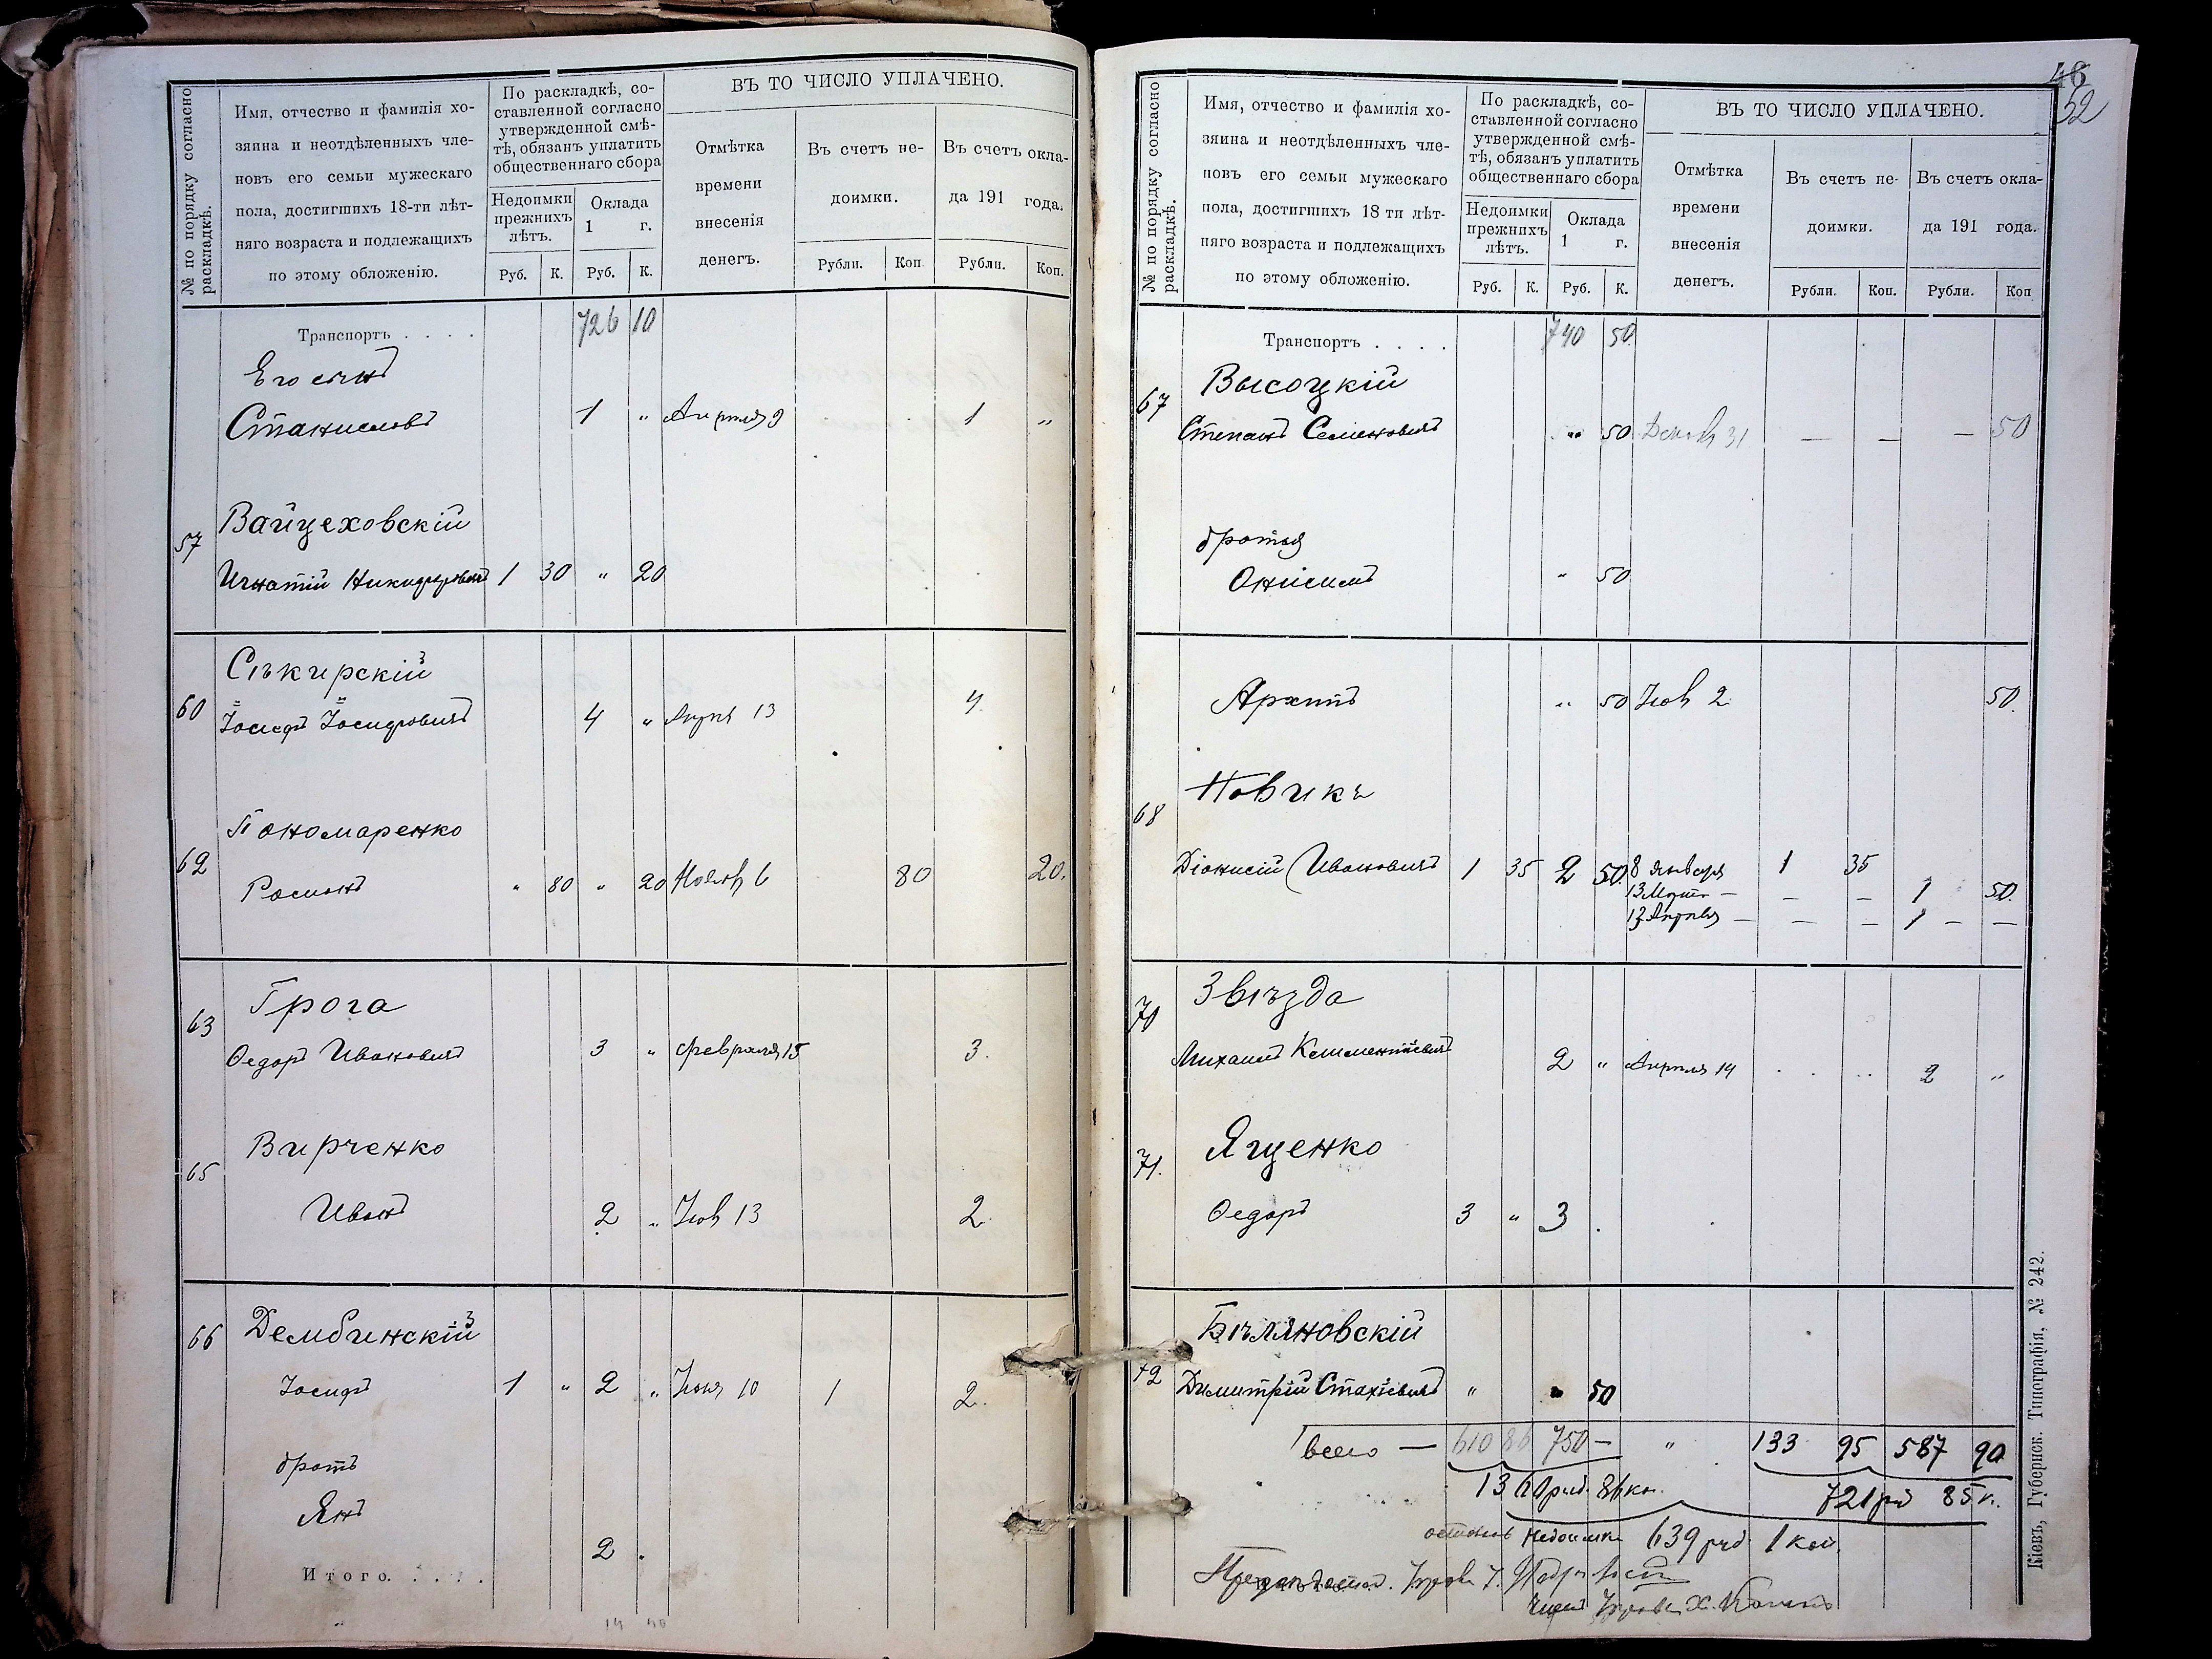 № по порядку согласно раскладкѣ.
Имя, отчество и фамилія хо-
зяина и неотдѣленныхъ чле-
новъ его семьи мужескаго
пола, достигшихъ 18-ти лѣт-
няго возраста и подлежащихъ
по этому обложенію.
По раскладкѣ, со-
ставленной согласно
утвержденной смѣ-
тѣ, обязанъ уплатить
общественнаго сбора
Недоимки
прежнихъ
лѣтъ.
Оклада
1 г.
Руб. К. Руб. К.
ВЪ ТО ЧИСЛО УПЛАЧЕНО.
Отмѣтка
времени
внесенія
денегъ.
Въ счетъ не-
доимки.
Рубли. Коп.
Въ счетъ окла-
да 191 года.
Рубли. Коп.
Транспортъ . . . . 726 10
Его сынъ
Станиславъ 1 " Апрѣля 9 1 "
57 Вайцеховскій
Игнатій Никифоровичъ 1 30 " 20
60 Сѣкирскій
Іосифъ Іосифовичъ 4 " Апрѣ 13 4.
62 Пономаренко
Романъ " 80 " 20 Ноябр 6 80 20.
63 Грога
Федоръ Ивановичъ 3 " Февраля 15 3.
65 Вирченко
Иванъ 2 " Іюл 13 2.
66 Дембинскій
Іосифъ 1 " 2 " Іюня 10 1 2.
братъ
Янъ
2 "
Итого. . . . .
14 40
46
52
№ по порядку согласно раскладкѣ.
Имя, отчество и фамилія хо-
зяина и неотдѣленныхъ чле-
новъ его семьи мужескаго
пола, достигшихъ 18 ти лѣт-
няго возраста и подлежащихъ
по этому обложенію.
По раскладкѣ, со-
ставленной согласно
утвержденной смѣ-
тѣ, обязанъ уплатить
общественнаго сбора
Недоимки
прежнихъ
лѣтъ.
Оклада
1 г.
Руб. К. Руб. К.
ВЪ ТО ЧИСЛО УПЛАЧЕНО.
Отмѣтка
времени
внесенія
денегъ.
Въ счетъ не-
доимки.
Рубли. Коп.
Въ счетъ окла-
да 191 года.
Рубли. Коп
Транспортъ . . . . 740 50
67 Высоцкій
Степанъ Семеновичъ " 50 Декаб 31 — — — 50
братья
Онисимъ " 50
Архипъ " 50 Іюл 2 50.
68 Новикъ
Діонисій Ивановичъ 1 35 2 50 8 Января 1 35
13 Март — — — 1 50
13 Апрѣля — — — 1 — —
70 Звѣзда
Михаилъ Климентіевичъ 2 " Апрѣля 14 2 "
71. Ященко
Федоръ 3 " 3 .
72 Бѣляновскій
Димитрій Стахіевичъ " " 50
Всего — 610 86 750 — " 133 95 587 90
1360 руб. 86 коп. 721 руб 85 к.
недоимки 639 руб 1 коп.
Кіевъ, Губернск. Типографія, № 242.